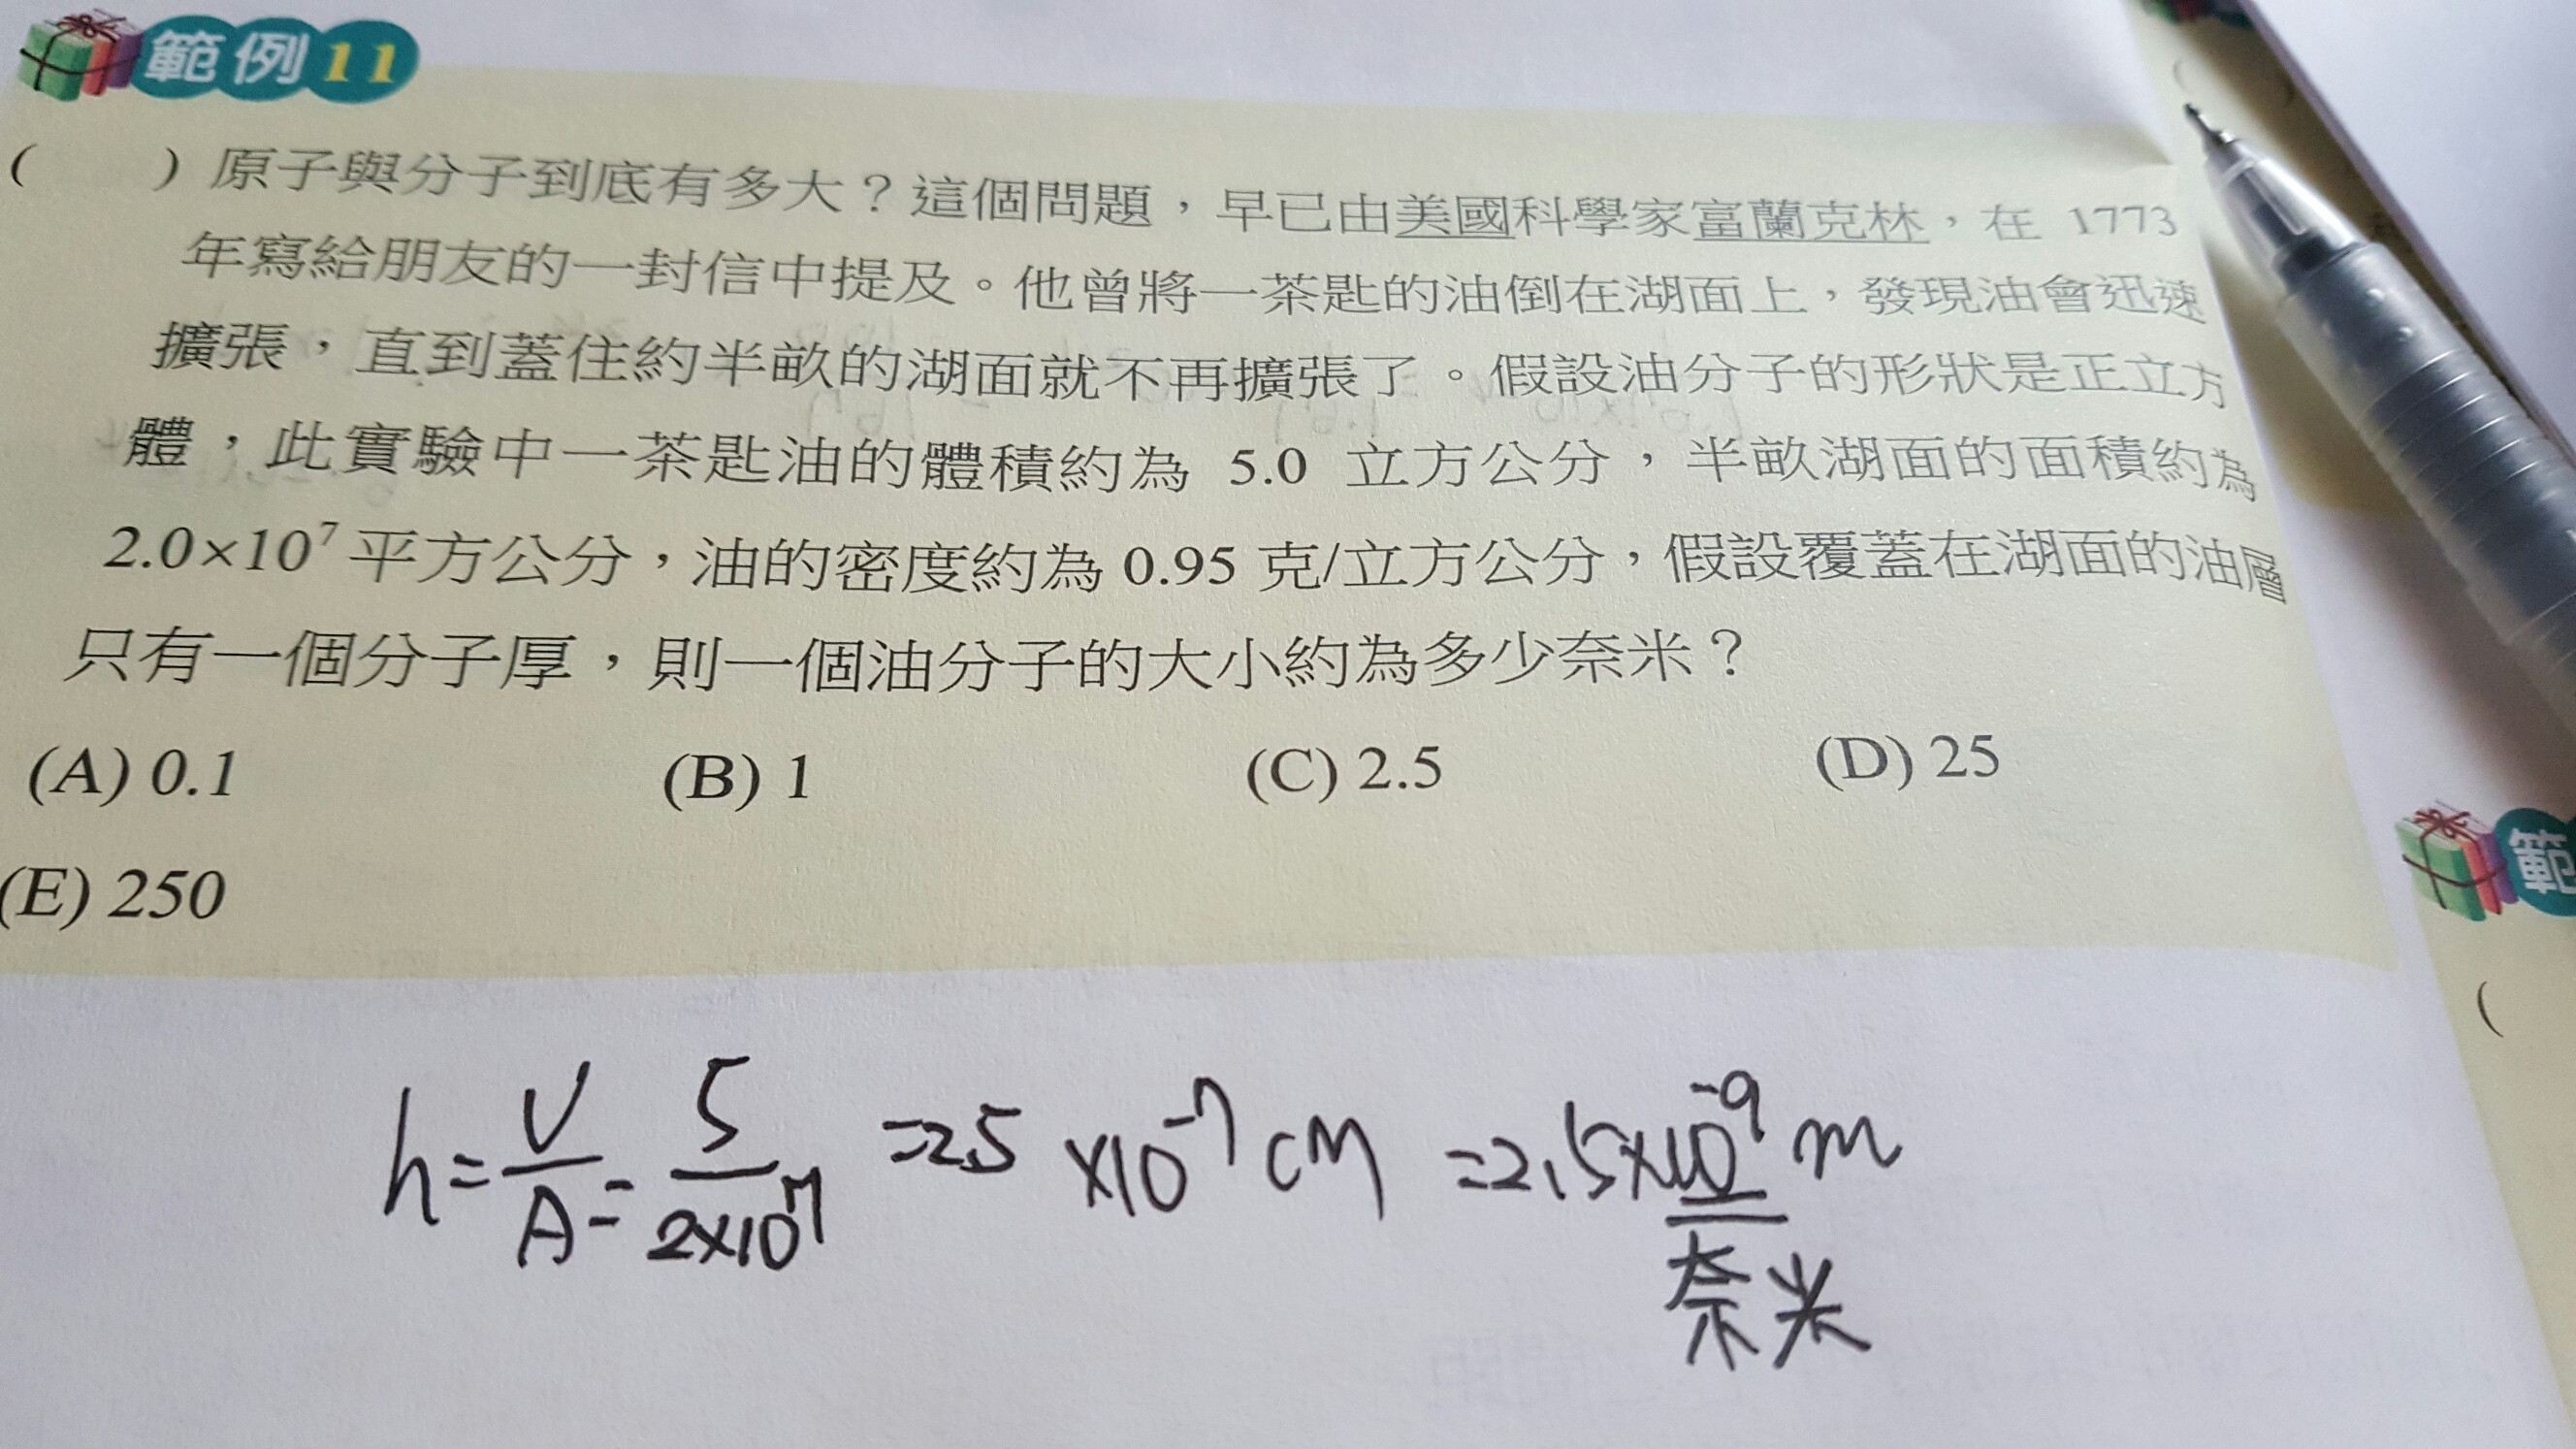 範例11
( )原子與分子到底有多大？這個問題，早已由美國科學家富蘭克林，在 1773
年寫給朋友的一封信中提及。他曾將一茶匙的油倒在湖面上，發現油會迅速
擴張，直到蓋住約半畝的湖面就不再擴張了。假設油分子的形狀是正立方
體，此實驗中一茶匙油的體積約為 5.0 立方公分，半畝湖面的面積約為
2.0×10⁷ 平方公分，油的密度約為 0.95 克/立方公分，假設覆蓋在湖面的油層
只有一個分子厚，則一個油分子的大小約為多少奈米？
(A) 0.1 (B) 1 (C) 2.5 (D) 25
(E) 250
範
(
h=V/A=5/2×10⁷=2.5×10⁻⁷cm=2.5×10⁻⁹m
奈米